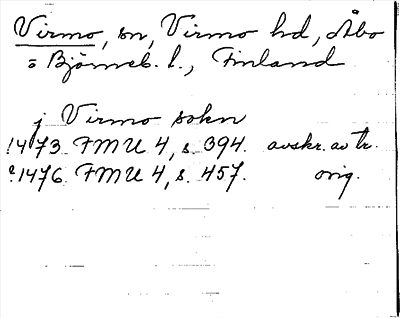 Virmo, sn, Virmo hd, Åbo
o Björneb. l., Finland
j Virmo sokn
1473 FMU 4, s. 394. avskr. av tr.
1476 FMU 4, s. 457. orig.